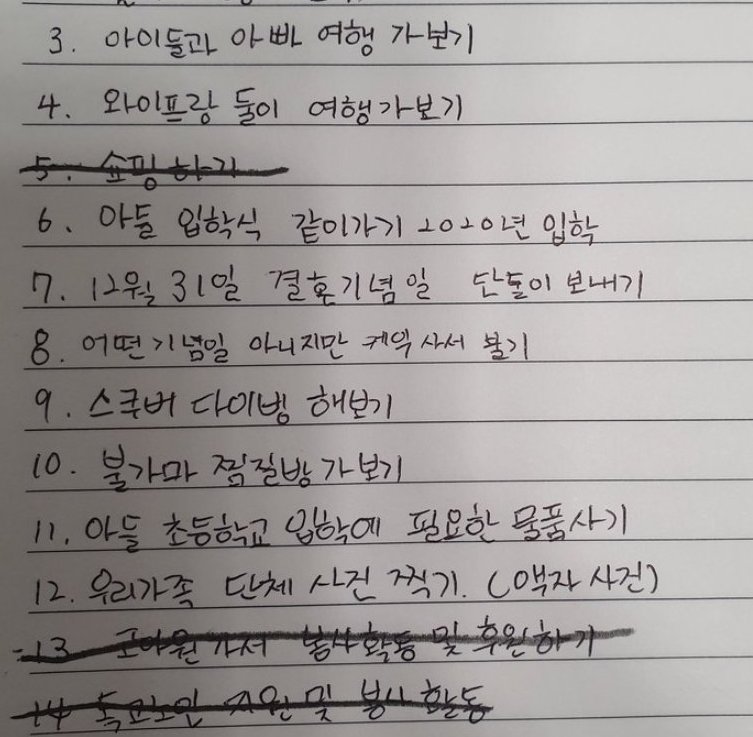 3. 아이들과 아빠 여행 가보기
4. 와이프랑 둘이 여행가보기
5. 쇼핑하기
6. 아들 입학식 같이가기 2020년 입학
7. 12월 31일 결혼기념일 단둘이 보내기
8. 어떤기념일 아니지만 케익 사서 불기
9. 스쿠버 다이빙 해보기
10. 불가마 찜질방가보기
11. 아들 초등학교 입학에 필요한 물품사기
12. 우리가족 단체 사진 찍기. (액자 사진)
13 고아원가서 봉사활동 및 후원하기
14 독고노인 지원 및 봉사 활동